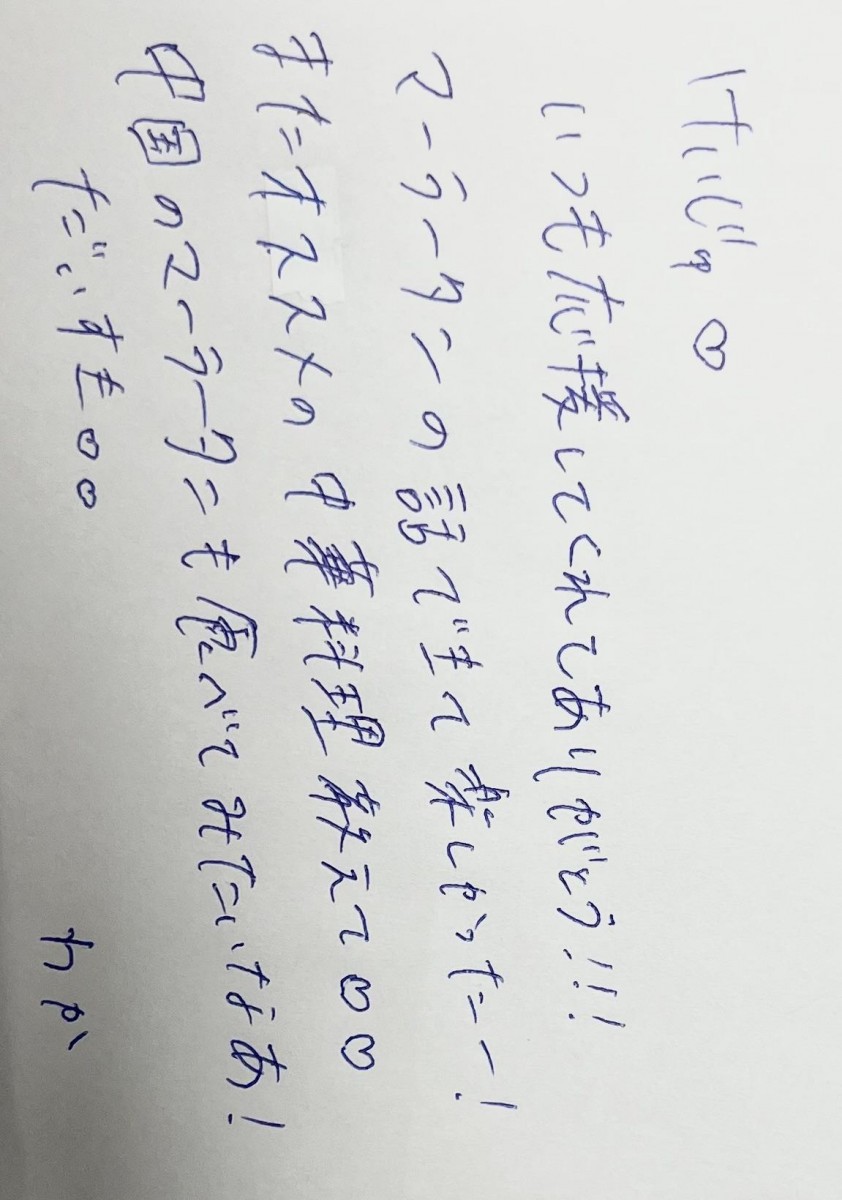 けいじゅ♡
いつも応援してくれてありがとう!!!
マーラータンの話できて楽しかったー!
またオススメの中華料理教えて♡♡
中国のマーラータンも食べてみたいなあ!
だいすき♡♡
わか